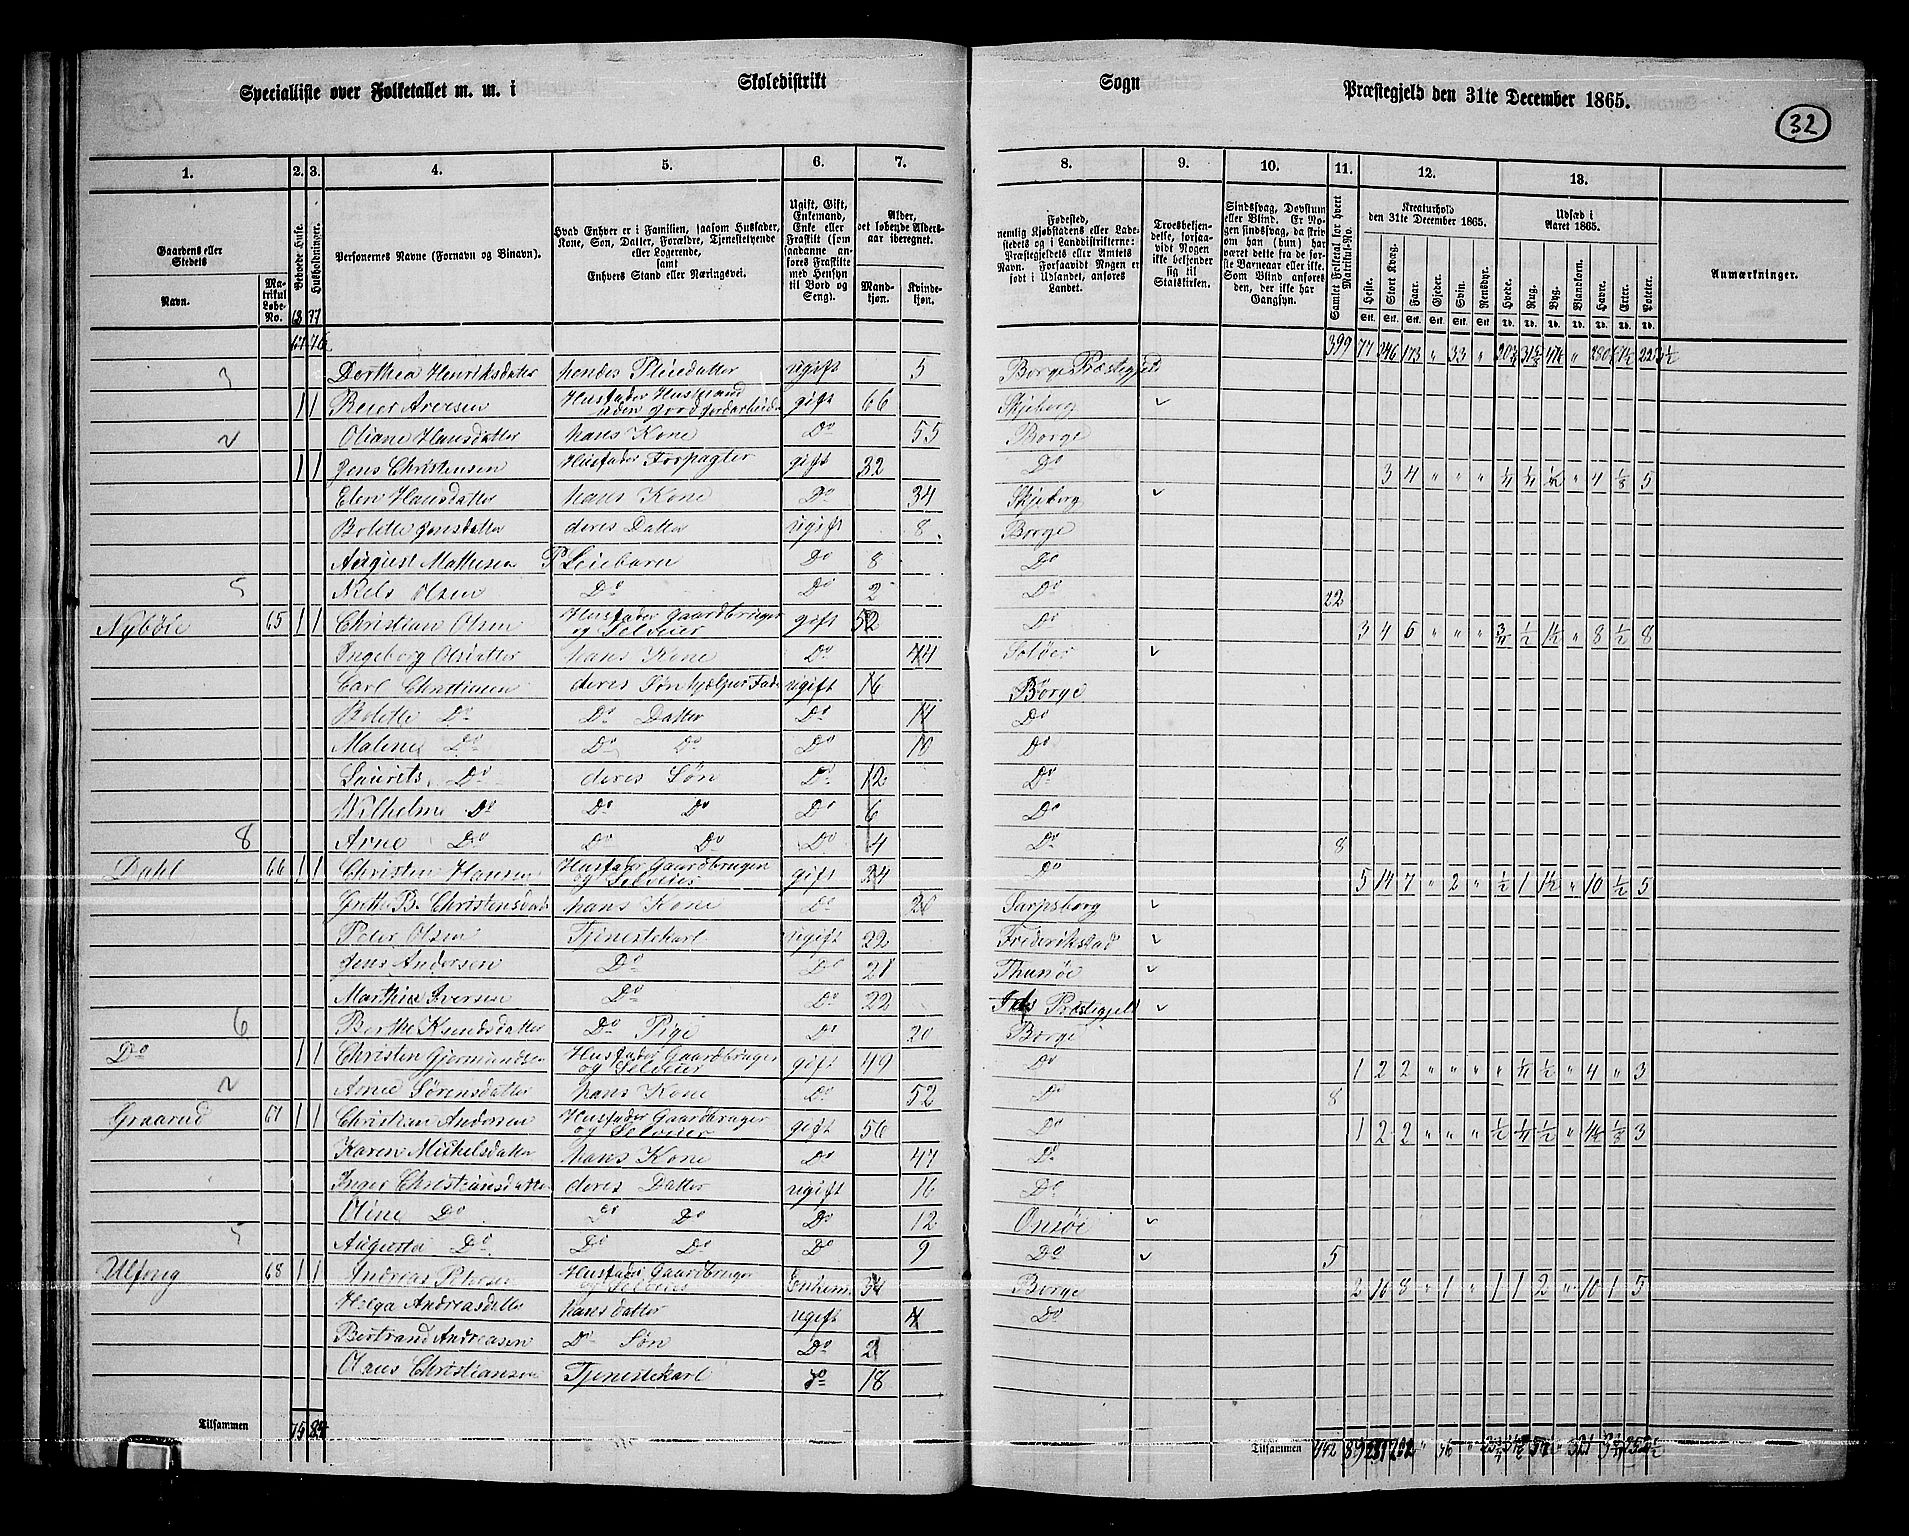 Specialliste over Folketallet m. m. i Skoledistrikt Sogn Præstegjeld den 31te December 1865.
32
1. 2. 3. 4. 5. 6. 7. 8. 9. 10. 11. 12. 13.
Gaardens eller Stedets Navn.
Matrikul Løbe-No.
Beboede Huse.
Husholdninger.
Personernes Navne (Fornavn og Binavn).
Hvad Enhver er i Familien, saasom Husfader, Kone, Søn, Datter, Forældre, Tjenestetyende eller Logerende, samt Enhvers Stand eller Næringsvei.
Ugift, Gift, Enkemand, Enke eller Fraskilt (som saadanne anføres Fraskilte med Hensyn til Bord og Seng).
Alder, det løbende Alders-aar iberegnet.
Mandkjøn. Kvindekjøn.
Fødested, nemlig Kjøbstadens eller Ladestedets og i Landdistrikterne: Præstegjeldets eller Amtets Navn. Forsaavidt Nogen er født i Udlandet, anføres Landet.
Troesbekjendelse, forsaavidt Nogen ikke bekjender sig til Statskirken.
Sindssvag, Døvstum eller Blind. Er Nogen sindssvag, da skrives om han (hun) har været dette fra de første Barneaar eller ikke. Som Blind anføres den, der ikke har Gangsyn.
Samlet Folketal for hvert Matrikul-No.
Kreaturhold den 31te December 1865.
Heste. Stort Kvæg. Faar. Gjeder. Svin. Rensdyr.
Udsæd i Aaret 1865.
Hvede. Rug. Byg. Blandkorn. Havre. Erter. Poteter.
Anmærkninger.
399 77 246 173 " 33 "
3 Dorthea Henriksdatter hendes Pleiedatter ugift 5 Borge Præstegjeld
1 1 Reier Aversen Husfader Husmand uden Jord Jordarbeider gift 66 Skjeberg
2 Oliane Hansdatter hans Kone Do 55 Borge
1 1 Jens Christensen Husfader Forpagter gift 32 Do 3 4 " " " ¼ ¼ 1½ " 4 ⅛ 5
Elen Hansdatter hans Kone Do 34 Skjeberg
Bolette Jensdatter deres Datter ugift 8 Borge
August Mathesen Pleiebarn Do 8 Do
5 Niels Olsen Do Do 2 Do 22
Nybøie 65 1 1 Christian Olsen Husfader Gaardbruger og Selveier gift 52 Do 3 4 6 " " " ¾ ½ 1½ " 8 ½ 8
Ingeborg Olsdatter hans Kone Do 44 Soløer
Carl Christiansen deres Søn hjelper Fad. ugift 16 Borge
Bolette Do Do Datter Do 14 Do
Maline Do Do Do Do 10 Do
Laurits Do deres Søn Do 12 Do
Wilhelm Do Do Do Do 6
8 Arne Do Do Do Do 4 Do 8
Dahl 66 1 1 Christen Hansen Husfader Gaardbruger og Selveier gift 34 Do 5 14 7 " 2 " ½ 1 1½ " 10 ½ 5
Grethe B. Christensdatter hans Kone Do 30 Sarpsborg
Peter Olsen Tjenestekarl ugift 22 Frederikstad
Jens Andersen Do Do 21 Thunøe
Marthin Iversen Do Do 22 Ids Præstegjeld
6 Berthe Knudsdatter Do Pige Do 20 Borge
Do 1 1 Christen Gjermundsen Husfader Gaardbruger og Selveier gift 49 Do 1 2 2 " " " " ¼ ½ " 4 " 3
2 Anne Sørensdatter hans Kone Do 52 Do 8
Graarud 67 1 1 Christian Andersen Husfader Gaardbruger og Selveier gift 56 Do 1 2 2 " " " ½ ¼ ½ " 4½ ⅛ 3
Karen Michelsdatter hans Kone Do 47 Do
Inger Christiansdatter deres Datter ugift 16 Do
Oline Do Do Do Do 12 Onsøe
5 Augusta Do Do Do Do 9 Do 5
68 1 1 Andreas Husfader Gaardbruger og Selveier Enkem. 34 Borge 2 16 8 " 1 " 1 1 2 " 10 1 5
Helga Andreasdatter hans datter ugift 4 Do
Bertrand Andreasen Do Søn Do 2
Olaus Christiansen Tjenestekarl Do 18
Tilsammen 75 84 Tilsammen 442